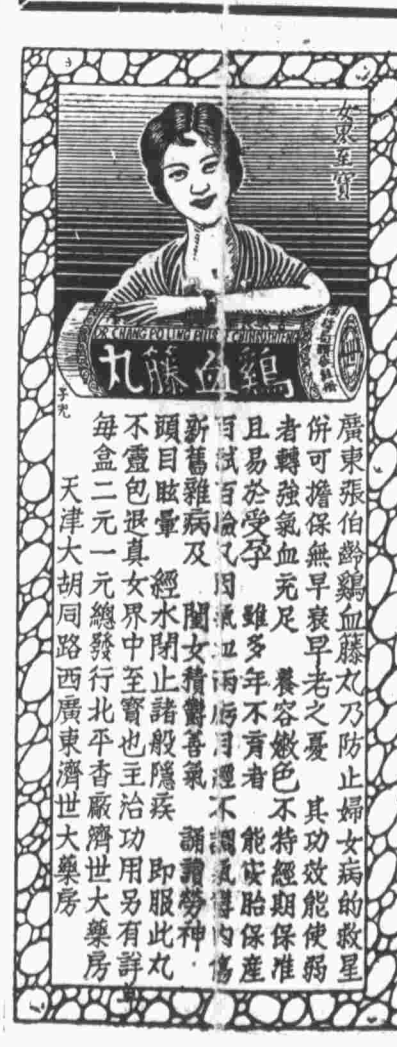 女界至寶
DR. CHANG PO LING
鷄血藤丸
子光
廣東張伯齡鷄血藤丸乃防止婦女病的救星
併可擔保無早衰早老之憂 其功效能使弱
者轉強氣血充足 養容嫩色不特經期保准
且易於受孕 雖多年不育者 能安胎保產
百試百驗凡因氣血兩虧月經不調氣 內傷
新舊雜病及 閨女積鬱善氣 誦讀勞神
頭目眩暈 經水閉止諸般隱疾 即服此丸
不靈包退真女界中至寶也主治功用另有詳單
每盒二元一元總發行北平香廠濟世大藥房
天津大胡同路西廣東濟世大藥房